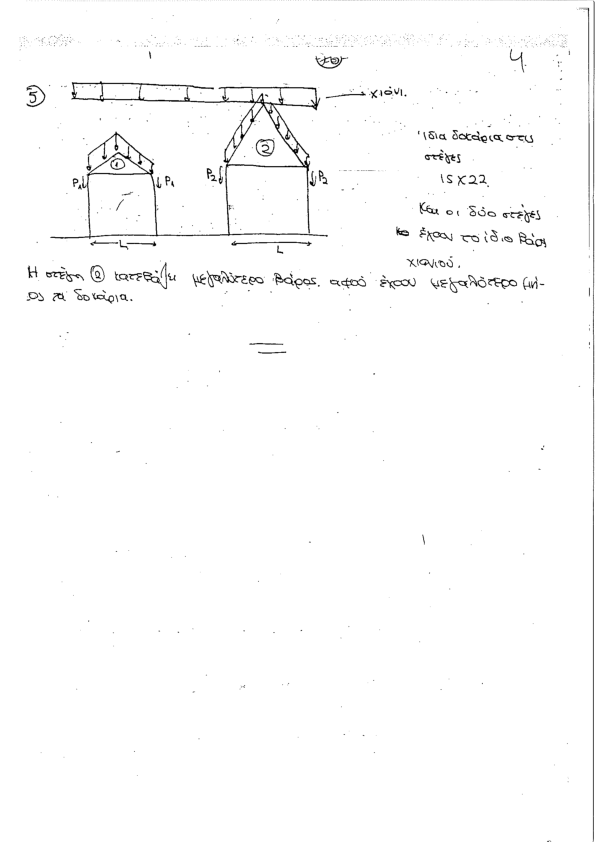 4
5
χιόνι.
1
2
Ρ₁ Ρ₁
Ρ₂ Ρ₂
L L
ίδια δοκάρια στις
στέγες
15 X 22.
Και οι δύο στέγες
έχουν το ίδιο βάρος
χιονιού.
Η στέγη ② κατεβάζει μεγαλύτερο βάρος, αφού έχουν μεγαλύτερο μή-
ος τα δοκάρια.